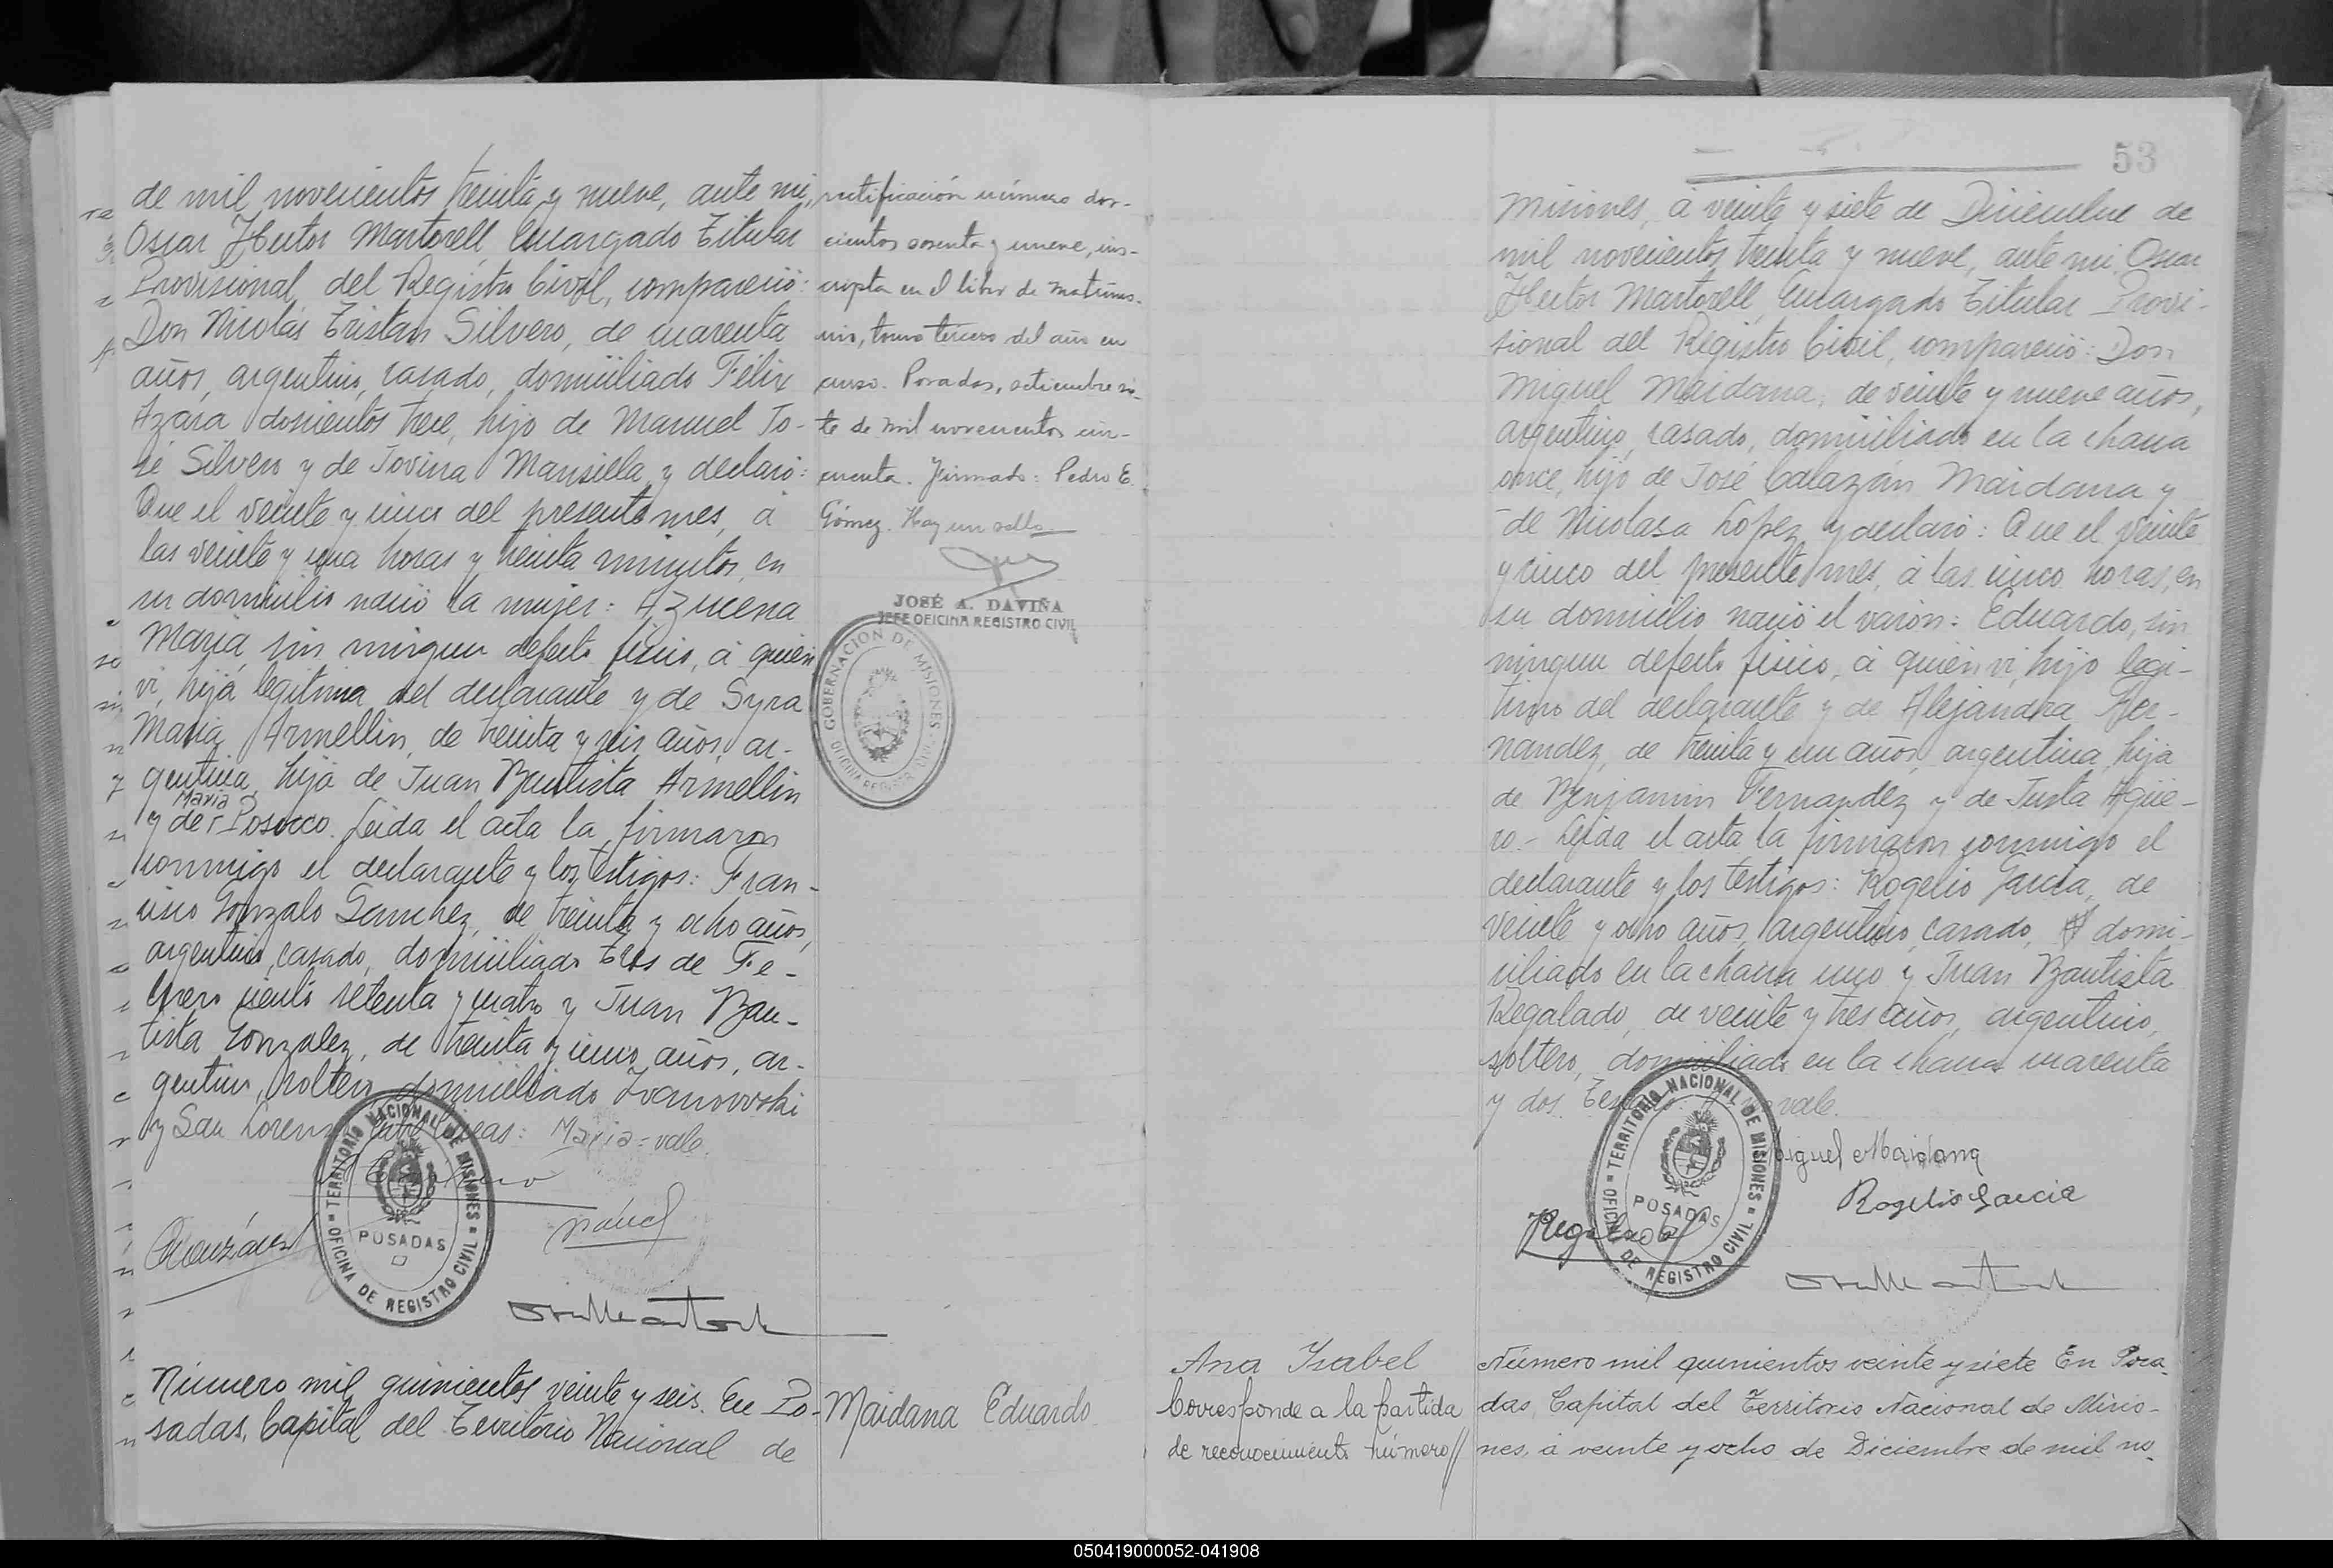 de mil novecientos treinta y nueve, ante mi,
Oscar Hector Martorell, Encargado Titular
Provisional del Registro Civil, compareció:
Don Nicolás Tristan Silvero, de cuarenta
años, argentino, casado, domiciliado Félix
Azara doscientos trece, hijo de Manuel Jo-
sé Silvero y de Jovina Mansilla, y declaró:
Que el veinte y cinco del presente mes, á
las veinte y una horas y treinta minutos, en
su domicilio nació la mujer: Azucena
Maria, sin ningun defecto fisico, á quien
vi, hija legitima del declarante y de Syra
Maria Armellin, de treinta y seis años, ar-
gentina, hija de Juan Bautista Armellin
Maria
y de Posocco. Leida el acta la firmaron
conmigo el declarante y los testigos: Fran-
cisco Gonzalo Sanchez, de treinta y ocho años,
argentino, casado, domiciliado Tres de Fe-
brero ciento setenta y cuatro y Juan Bau-
tista Gonzalez, de treinta y cinco años, ar-
gentino, soltero, domiciliado Ivanovski
y San Lorenzo. Entre lineas: Maria = vale.
TERRITORIO NACIONAL DE MISIONES
POSADAS
OFICINA DE REGISTRO CIVIL
Número mil quinientos veinte y seis. En Po-
sadas, Capital del Territorio Nacional de
rectificación número dos-
cientos sesenta y nueve, ins-
cripta en el libro de matrimo-
nio, tomo tercero del año en
curso. Posadas, setiembre sie-
te de mil novecientos cin-
cuenta. Firmado: Pedro E.
Gómez. Hay un sello
JOSÉ A. DAVIÑA
JEFE OFICINA REGISTRO CIVIL
GOBERNACION DE MISIONES
Maidana Eduardo
Ana Isabel
Corresponde a la partida
de reconocimiento número//
53
Misiones, á veinte y siete de Diciembre de
mil novecientos treinta y nueve, ante mi, Oscar
Hector Martorell, Encargado Titular Provi-
sional del Registro Civil, compareció: Don
Miguel Maidana, de veinte y nueve años,
argentino, casado, domiciliado en la chacra
once, hijo de José Calazán Maidana y
de Nicolasa López, y declaró: Que el veinte
y cinco del presente mes, á las cinco horas, en
su domicilio nació el varón: Eduardo, sin
ningun defecto fisico, á quien vi, hijo legi-
timo del declarante y de Alejandra Fer-
nandez, de treinta y un años, argentina, hija
de Benjamin Fernandez y de Justa Agüe-
ro.- Leida el acta la firmaron conmigo el
declarante y los testigos: Rogelio Garcia, de
veinte y ocho años, argentino, casado, domi-
ciliado en la chacra uno y Juan Bautista
Regalado, de veinte y tres años, argentino,
soltero, domiciliado en la chacra cuarenta
y dos. vale.
Miguel Maidana
Rogelio Garcia
TERRITORIO NACIONAL DE MISIONES
POSADAS
OFICINA DE REGISTRO CIVIL
Número mil quinientos veinte y siete En Posa-
das, Capital del Territorio Nacional de Misio-
nes, á veinte y ocho de Diciembre de mil no-
050419000052-041908